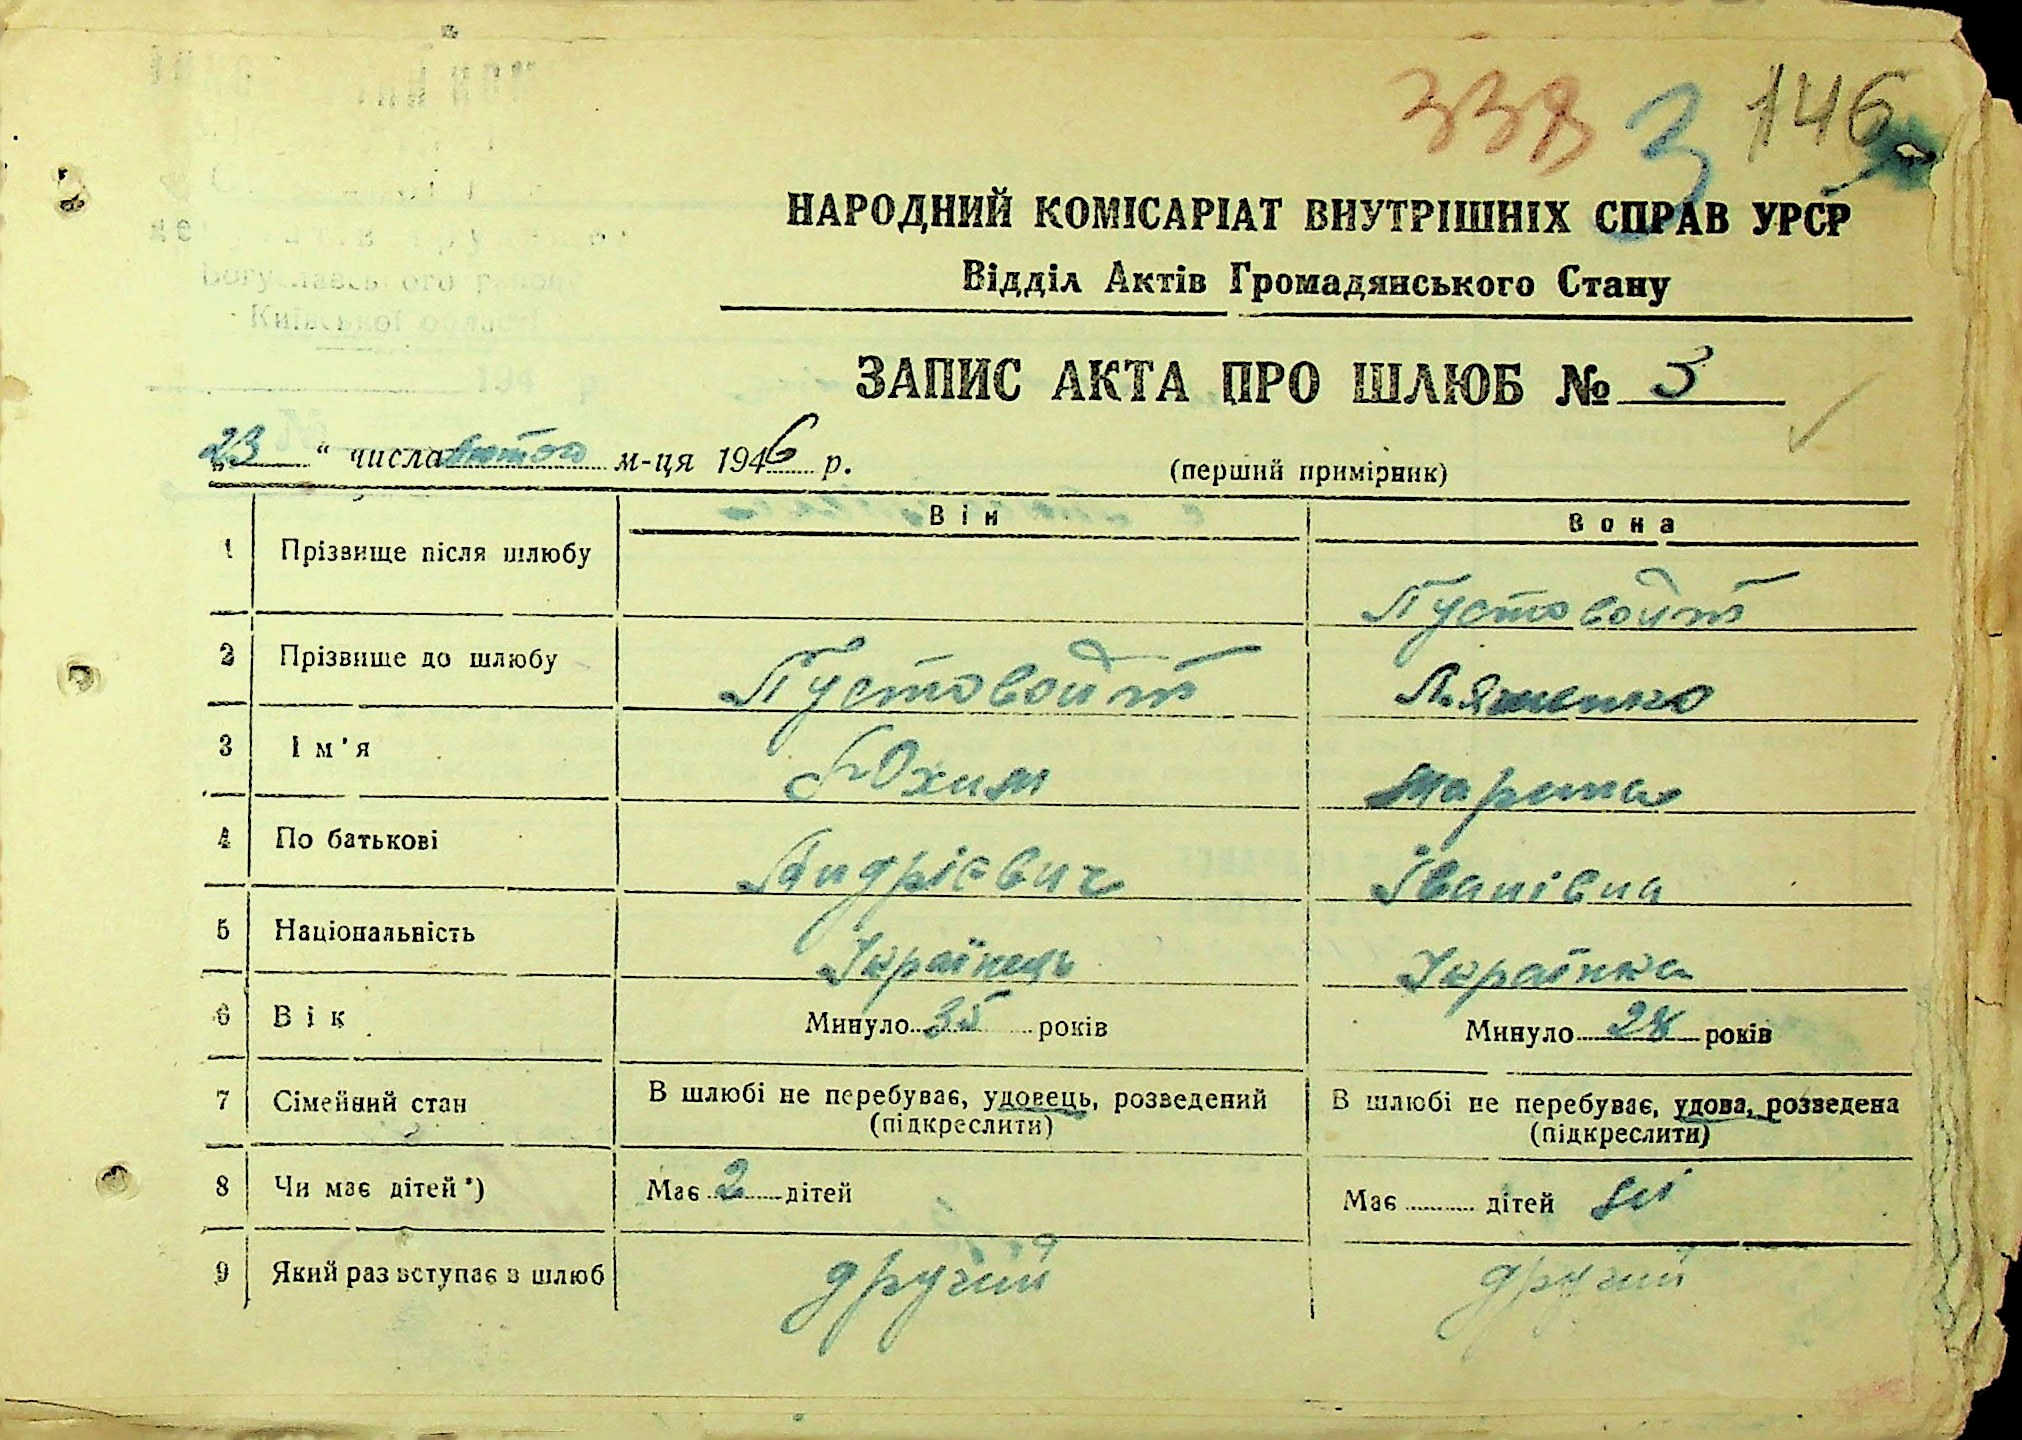 338 3 146
НАРОДНИЙ КОМІСАРІАТ ВНУТРІШНІХ СПРАВ УРСР
Відділ Актів Громадянського Стану
ЗАПИС АКТА ПРО ШЛЮБ № 3
„23“ числа лютого м-ця 1946 р.
(перший примірник)
Він Вона
1 Прізвище після шлюбу Пустовойт
2 Прізвище до шлюбу Пустовойт Ляшенко
3 Ім'я Юхим Марина
4 По батькові Андрієвич Іванівна
5 Національність Українець Українка
6 Вік Минуло 35 років Минуло 28 років
7 Сімейний стан В шлюбі не перебуває, удовець, розведений В шлюбі не перебуває, удова, розведена
(підкреслити) (підкреслити)
8 Чи має дітей*) Має 2 дітей Має дітей
9 Який раз вступає в шлюб другий другий